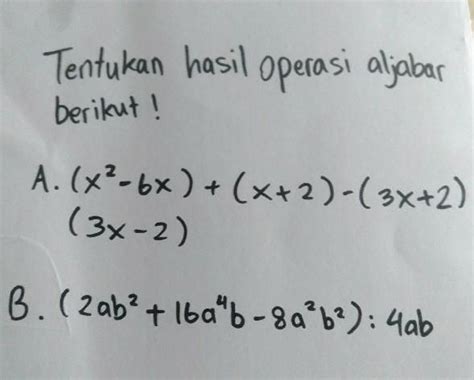 Tentukan hasil operasi aljabar
berikut !
A. (x²-6x) + (x+2)-(3x+2)
(3x-2)
B. (2ab² + 16a⁴b - 8a²b²) : 4ab